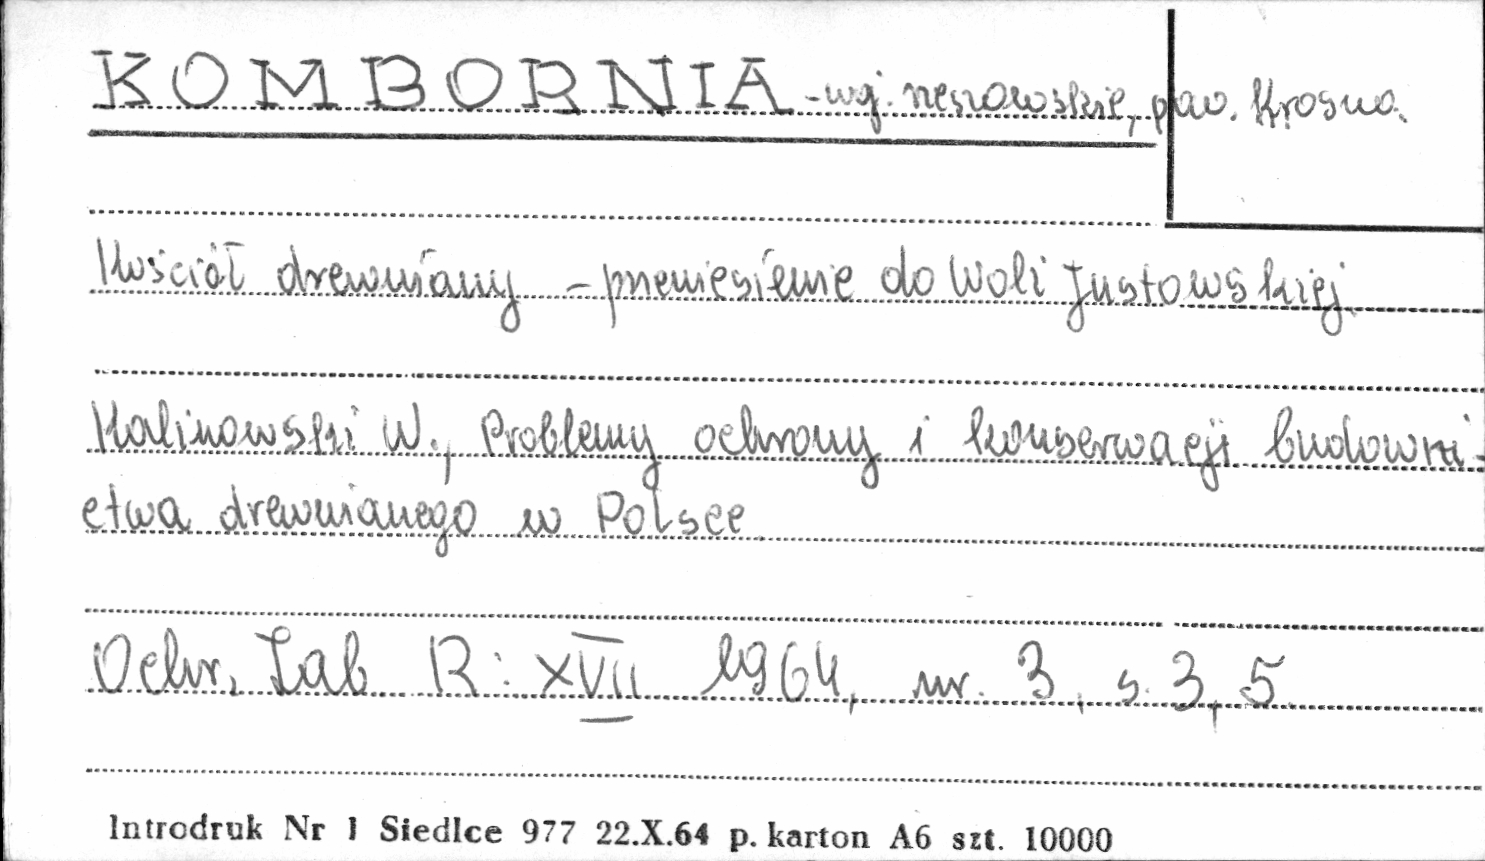 KOMBORNIA - woj. rzeszowskie, pow. Krosno.
Kościół drewniany - przeniesienie do Woli Justowskiej.
Kalinowski W., Problemy ochrony i konserwacji budowni-
ctwa drewnianego w Polsce.
Ochr. Zab R: XVII 1964, nr. 3, s. 3, 5.
Introdruk Nr 1 Siedlce 977 22.X.64 p. karton A6 szt. 10000